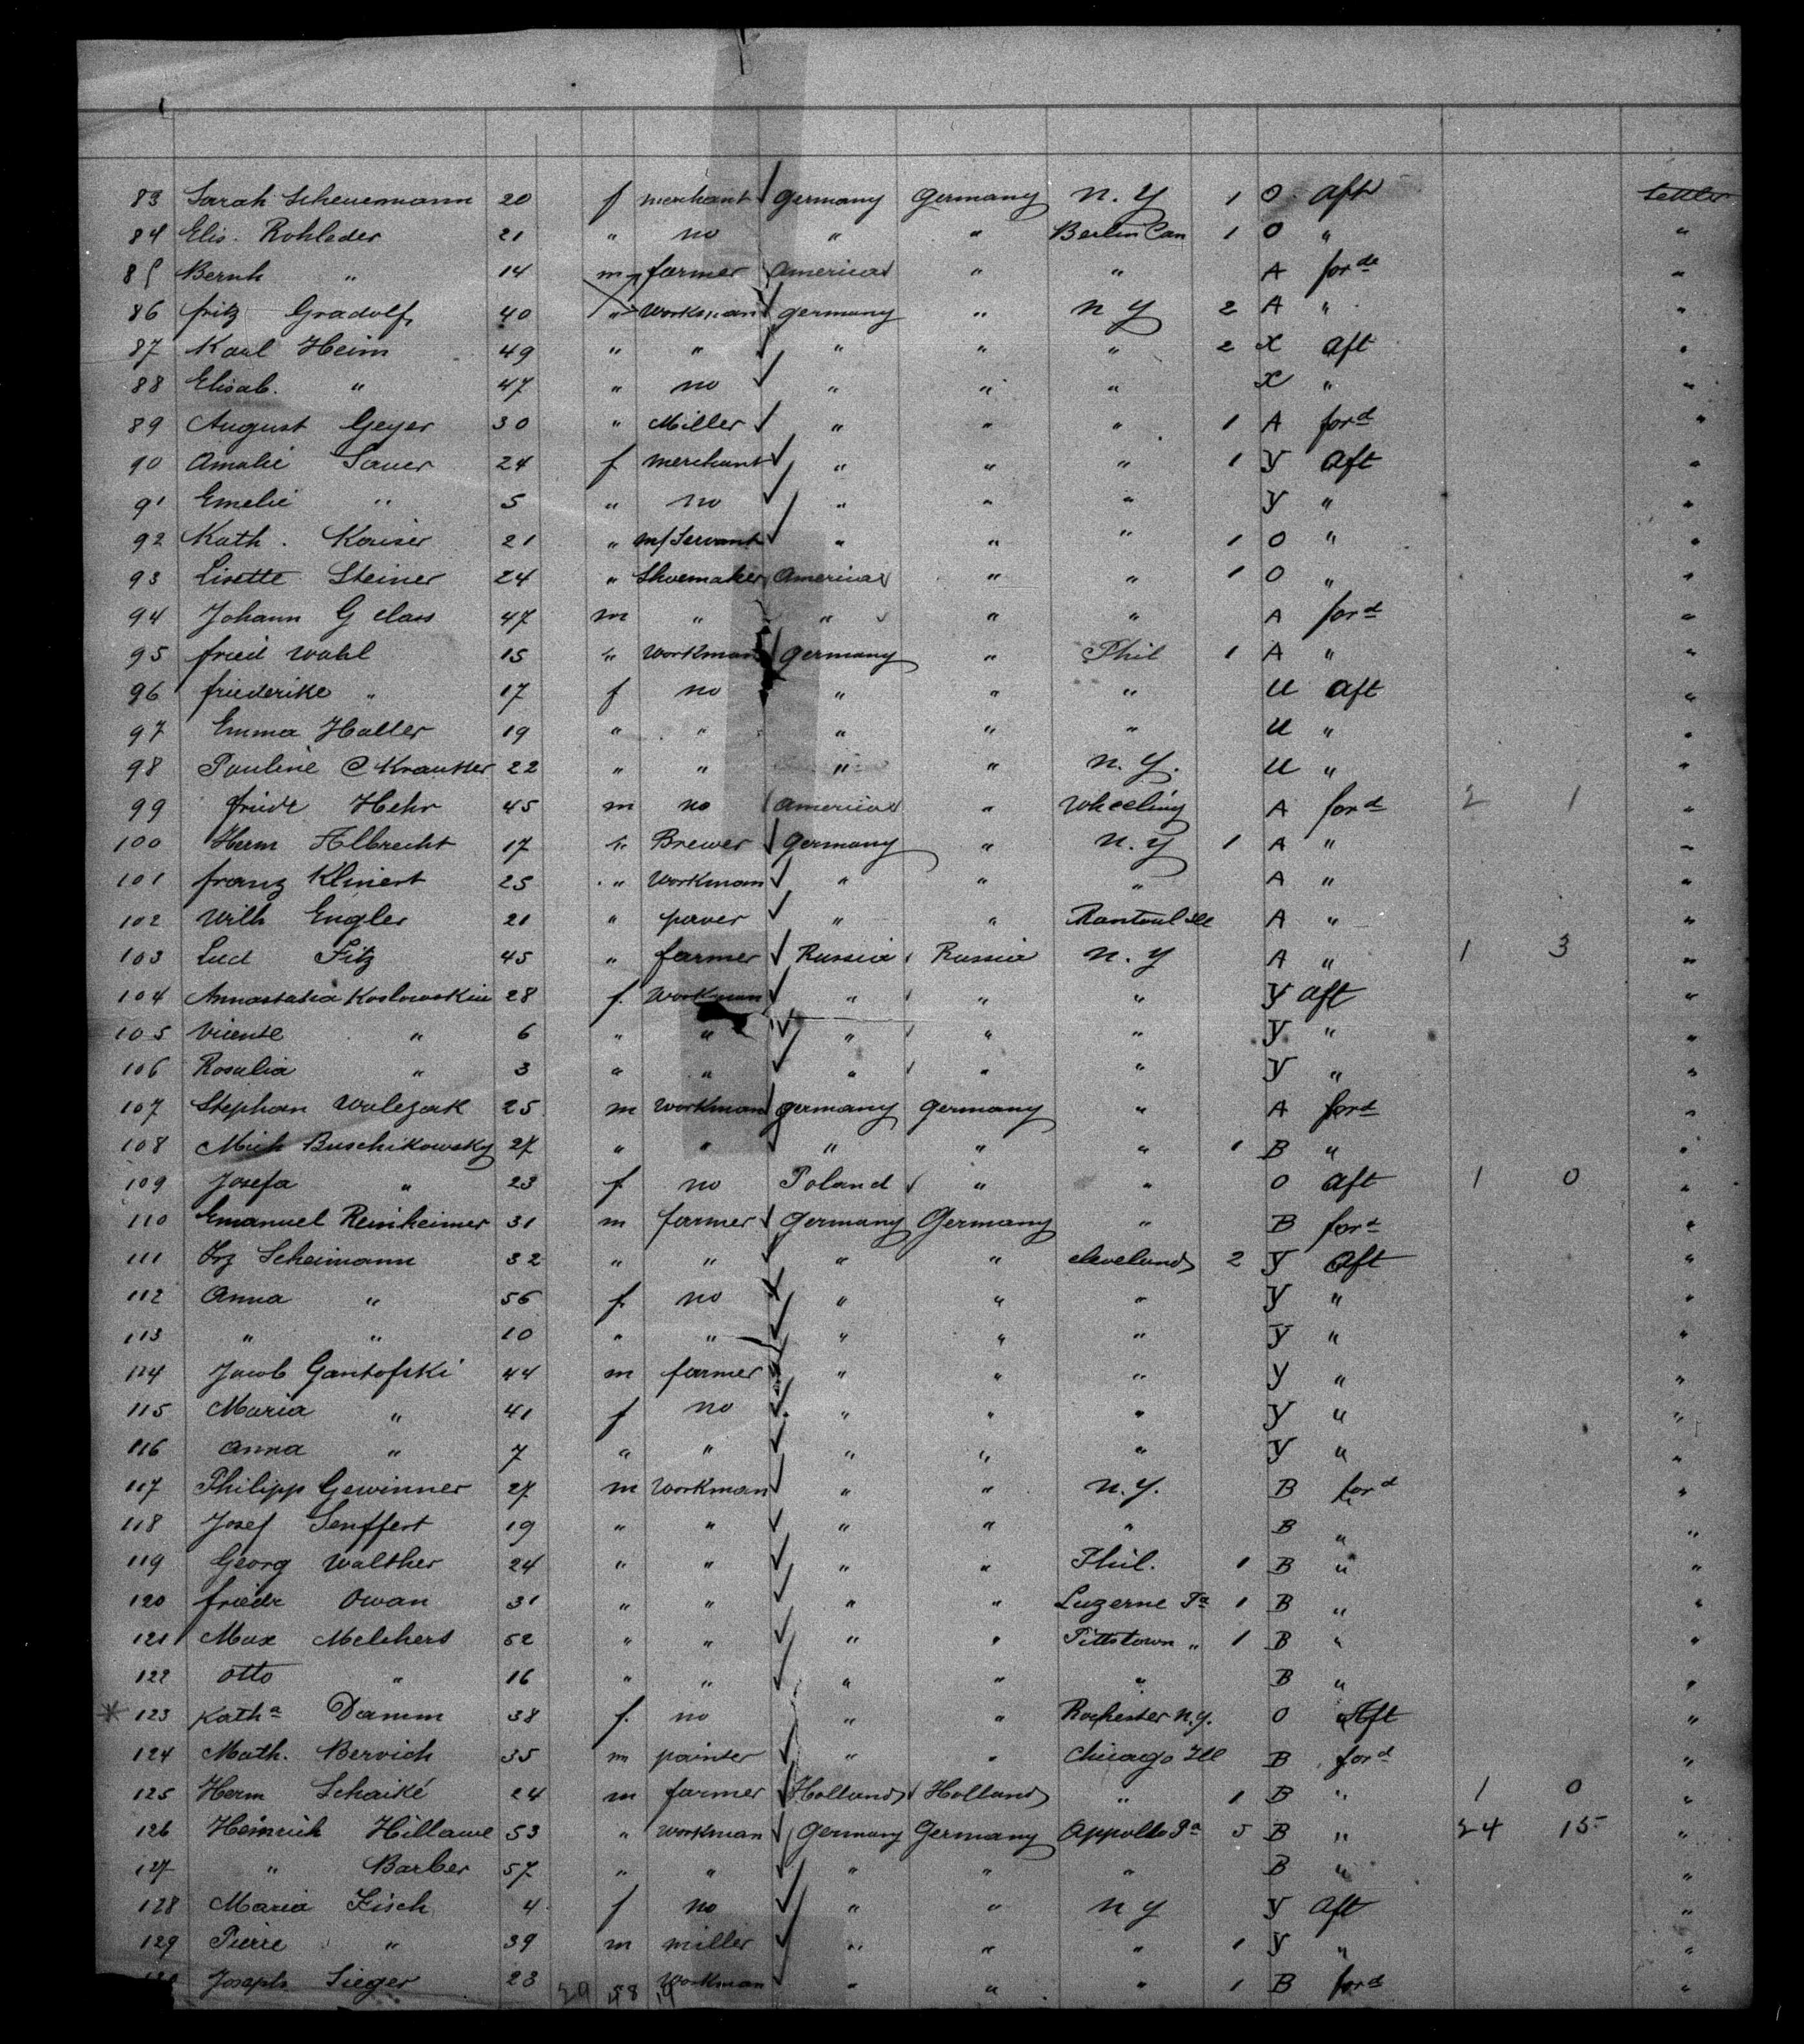 83 Sarah Scheuemann 20 f merchant Germany Germany N. Y 1 O aft settler
84 Elis. Rohleder 21 " no " " Berlin Can 1 O " "
85 Bernh " 14 m farmer America " " A ford "
86 Fritz Gradolf 40 " workman Germany " N Y 2 A " "
87 Karl Heim 49 " " " " " 2 X aft "
88 Elisab. " 47 " no " " " X " "
89 August Geyer 30 " Miller " " " 1 A ford "
90 Amalie Sauer 24 f merchant " " " 1 Y aft "
91 Emelie " 5 " no " " " Y " "
92 Kath. Kaiser 21 " m/Servant " " " 1 O " "
93 Lisette Steiner 24 " Shoemaker America " " 1 O " "
94 Johann G class 47 m " " " " A ford "
95 Fried Wahl 15 " workman Germany " Phil 1 A " "
96 Friederike " 17 f no " " " U aft "
97 Emma Haller 19 " " " " " U " "
98 Pauline C Krauter 22 " " " " N. Y. U " "
99 Friedr Hehr 45 m no America " Wheeling A ford 2 1 "
100 Herm Albrecht 17 " Brewer Germany " N. Y 1 A " "
101 Franz Klinert 25 " workman " " " A " "
102 Wilh Engler 21 " paver " " Rantoul Ill A " "
103 Lud Fitz 45 " farmer Russia Russia N. Y A " 1 3 "
104 Annastasia Koslowskie 28 f. workman " " " Y aft "
105 Vicente " 6 " " " " " Y " "
106 Rosalia " 3 " " " " " Y " "
107 Stephan Walezak 25 m workman Germany Germany " A ford "
108 Mich Buschikowsky 27 " " " " " 1 B " "
109 Josefa " 23 f no Poland " " O aft 1 0 "
110 Emanuel Reinheimer 31 m farmer Germany Germany " B ford "
111 Frz Scheimann 32 " " " " Cleveland 2 Y aft "
112 Anna " 56 f. no " " " Y " "
113 " " 10 " " " " " Y " "
114 Jacob Gantofski 44 m farmer " " " Y " "
115 Maria " 41 f no " " " Y " "
116 Anna " 7 " " " " " Y " "
117 Philipp Gewinner 27 m workman " " N. Y. B ford "
118 Josef Senffert 19 " " " " " B " "
119 Georg Walther 24 " " " " Phil. 1 B " "
120 Friedr Owan 31 " " " " Luzerne Pa 1 B " "
121 Max Melchers 52 " " " " Pittstown " 1 B " "
122 Otto " 16 " " " " " B " "
* 123 Katha Damm 38 f. no " " Rochester N. Y. O Aft "
124 Math. Bervich 35 m painter " " Chicago Ill B ford "
125 Herm Schaiké 24 m farmer Holland Holland " 1 B " 1 0 "
126 Heinrich Hillawe 53 " workman Germany Germany Appollo Pa 5 B " 24 15 "
127 " Barber 57 " " " " " B " "
128 Maria Fisch 4 f no " " N Y Y Aft "
129 Pierre " 39 m miller " " " 1 Y " "
Joseph Sieger 23 workman " " " 1 B ford "